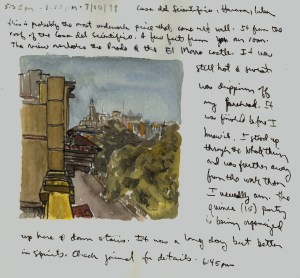 5:25pm - 8:00pm 7/10/99 Casa del Scientifico, Havana, Cuba
this is probably the most awkward piece that came out well. It from the
roof of the Casa del Scientifico. A few feet from our room.
The view overlooks the Prado & the El Morro castle. It was
still hot & sweat
was dripping off
my forehead. It
was finished before I
knew it. I stood up
through the whole thing
and was further away
from the work than
I usually am. The
quince (15) party
is being organized
up here & down stairs. It was a long day but better
in spirits. Check journal for details. 6:45am